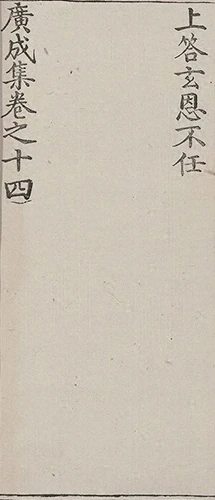 上答玄恩不任
廣成集卷之十四